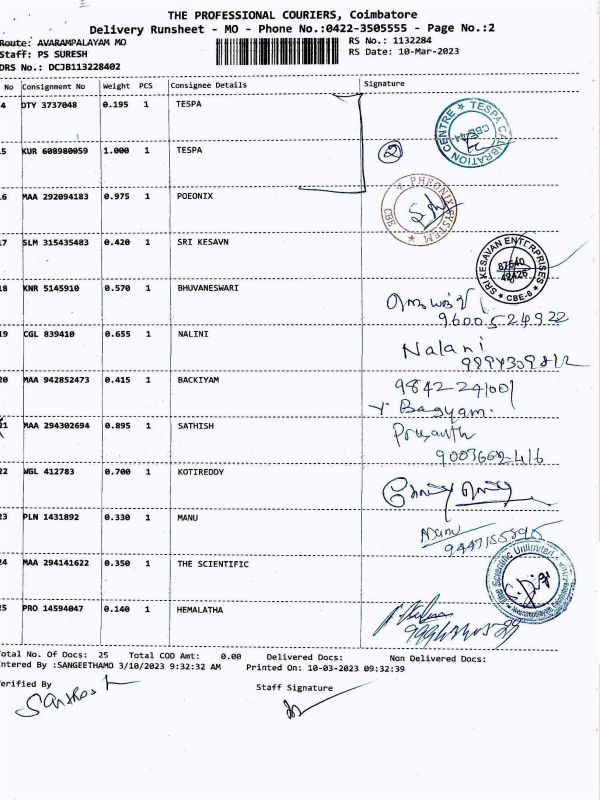 THE PROFESSIONAL COURIERS, Coimbatore
Delivery Runsheet - MO - Phone No.:0422-3505555 - Page No.:2
Route: AVARAMPALAYAM MO
RS No.: 1132284
Staff: PS SURESH
RS Date: 10-Mar-2023
DRS No.: DCJB113228402
No Consignment No Weight PCS Consignee Details Signature
4 DTY 3737048 0.195 1 TESPA
TESPA CALIBRATION CENTRE
5 KUR 608980059 1.000 1 TESPA
2
16 MAA 292094183 0.975 1 POEONIX
CBE
17 SLM 315435483 0.420 1 SRI KESAVN
SRI KESAVAN ENTERPRISES
CBE-6
18 KNR 5145910 0.570 1 BHUVANESWARI
9600524922
19 CGL 839410 0.655 1 NALINI
Nalani
20 MAA 942852473 0.415 1 BACKIYAM
9842241001
Y Bagyam.
21 MAA 294302694 0.895 1 SATHISH
Prasanth
9003662416
22 WGL 412783 0.700 1 KOTIREDDY
23 PLN 1431892 0.330 1 MANU
Manu
24 MAA 294141622 0.350 1 THE SCIENTIFIC
The Scientific Unlimited
25 PRO 14594047 0.140 1 HEMALATHA
Total No. Of Docs: 25 Total COD Amt: 0.00 Delivered Docs: Non Delivered Docs:
ntered By :SANGEETHAMO 3/10/2023 9:32:32 AM Printed On: 10-03-2023 09:32:39
erified By
Staff Signature
Santhosh